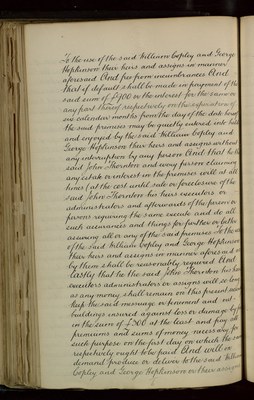 To the use of the said William Copley and George
Hopkinson their heirs and assigns in manner
aforesaid And free from incumbrances And
that if default shall be made in payment of the
said sum of £700 or the interest for the same or
any part thereof respectively on the expiration of
six calendar months from the day of the date hereof
the said premises may be quietly entered into held
and enjoyed by the said William Copley and
George Hopkinson their heirs and assigns without
any interruption by any person And that he the
said John Thornton and every person claiming
any estate or interest in the premises will at all
times (at the cost until sale or foreclosure of the
said John Thornton his heirs executors or
administrators and afterwards of the person or
persons requiring the same execute and do all
such assurances and things for further or better
assuring all or any of the said premises To the use
of the said William Copley and George Hopkinson
their heirs and assigns in manner aforesaid as
by them shall be reasonably required And
lastly that he the said John Thornton his heirs
executors administrators or assigns will so long
as any money shall remain on this present security
keep the said messuage or tenement and out-
buildings insured against loss or damage by fire
in the sum of £500 at the least and pay all
premiums and sums of money necessary for
such purpose on the first day on which the same
respectively ought to be paid And will on
demand produce or deliver to the said William
Copley and George Hopkinson or their assigns